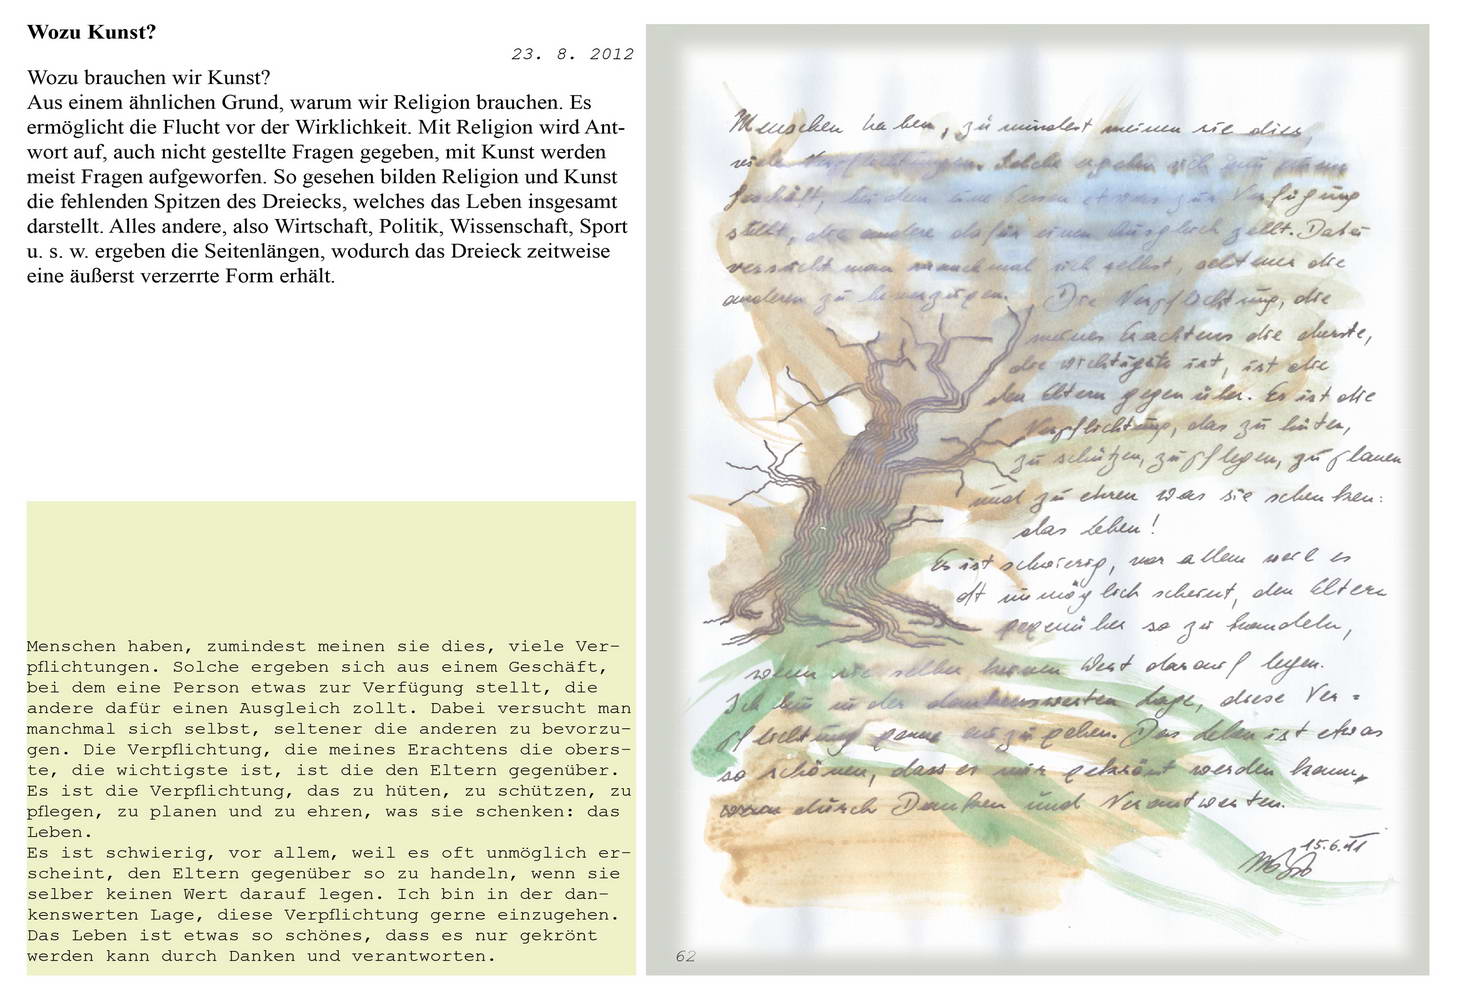 Wozu Kunst?
23. 8. 2012
Wozu brauchen wir Kunst?
Aus einem ähnlichen Grund, warum wir Religion brauchen. Es
ermöglicht die Flucht vor der Wirklichkeit. Mit Religion wird Ant-
wort auf, auch nicht gestellte Fragen gegeben, mit Kunst werden
meist Fragen aufgeworfen. So gesehen bilden Religion und Kunst
die fehlenden Spitzen des Dreiecks, welches das Leben insgesamt
darstellt. Alles andere, also Wirtschaft, Politik, Wissenschaft, Sport
u. s. w. ergeben die Seitenlängen, wodurch das Dreieck zeitweise
eine äußerst verzerrte Form erhält.
Menschen haben, zumindest meinen sie dies, viele Ver-
pflichtungen. Solche ergeben sich aus einem Geschäft,
bei dem eine Person etwas zur Verfügung stellt, die
andere dafür einen Ausgleich zollt. Dabei versucht man
manchmal sich selbst, seltener die anderen zu bevorzu-
gen. Die Verpflichtung, die meines Erachtens die obers-
te, die wichtigste ist, ist die den Eltern gegenüber.
Es ist die Verpflichtung, das zu hüten, zu schützen, zu
pflegen, zu planen und zu ehren, was sie schenken: das
Leben.
Es ist schwierig, vor allem, weil es oft unmöglich er-
scheint, den Eltern gegenüber so zu handeln, wenn sie
selber keinen Wert darauf legen. Ich bin in der dan-
kenswerten Lage, diese Verpflichtung gerne einzugehen.
Das Leben ist etwas so schönes, dass es nur gekrönt
werden kann durch Danken und verantworten.
Menschen haben, zumindest meinen sie dies,
viele Verpflichtungen. Solche ergeben sich aus einem
Geschäft, bei dem eine Person etwas zur Verfügung
stellt, die andere dafür einen Ausgleich zollt. Dabei
versucht man manchmal sich selbst, seltener die
anderen zu bevorzugen. Die Verpflichtung, die
meines Erachtens die oberste,
die wichtigste ist, ist die
den Eltern gegenüber. Es ist die
Verpflichtung, das zu hüten,
zu schützen, zu pflegen, zu planen
und zu ehren was sie schenken:
das Leben!
Es ist schwierig, vor allem weil es
oft unmöglich scheint, den Eltern
gegenüber so zu handeln,
wenn sie selber keinen Wert darauf legen.
Ich bin in der dankenswerten Lage, diese Ver=
pflichtung gerne einzugehen. Das Leben ist etwas
so schönes, dass es nur gekrönt werden kann,
durch Danken und Verantworten.
15.6.11
62